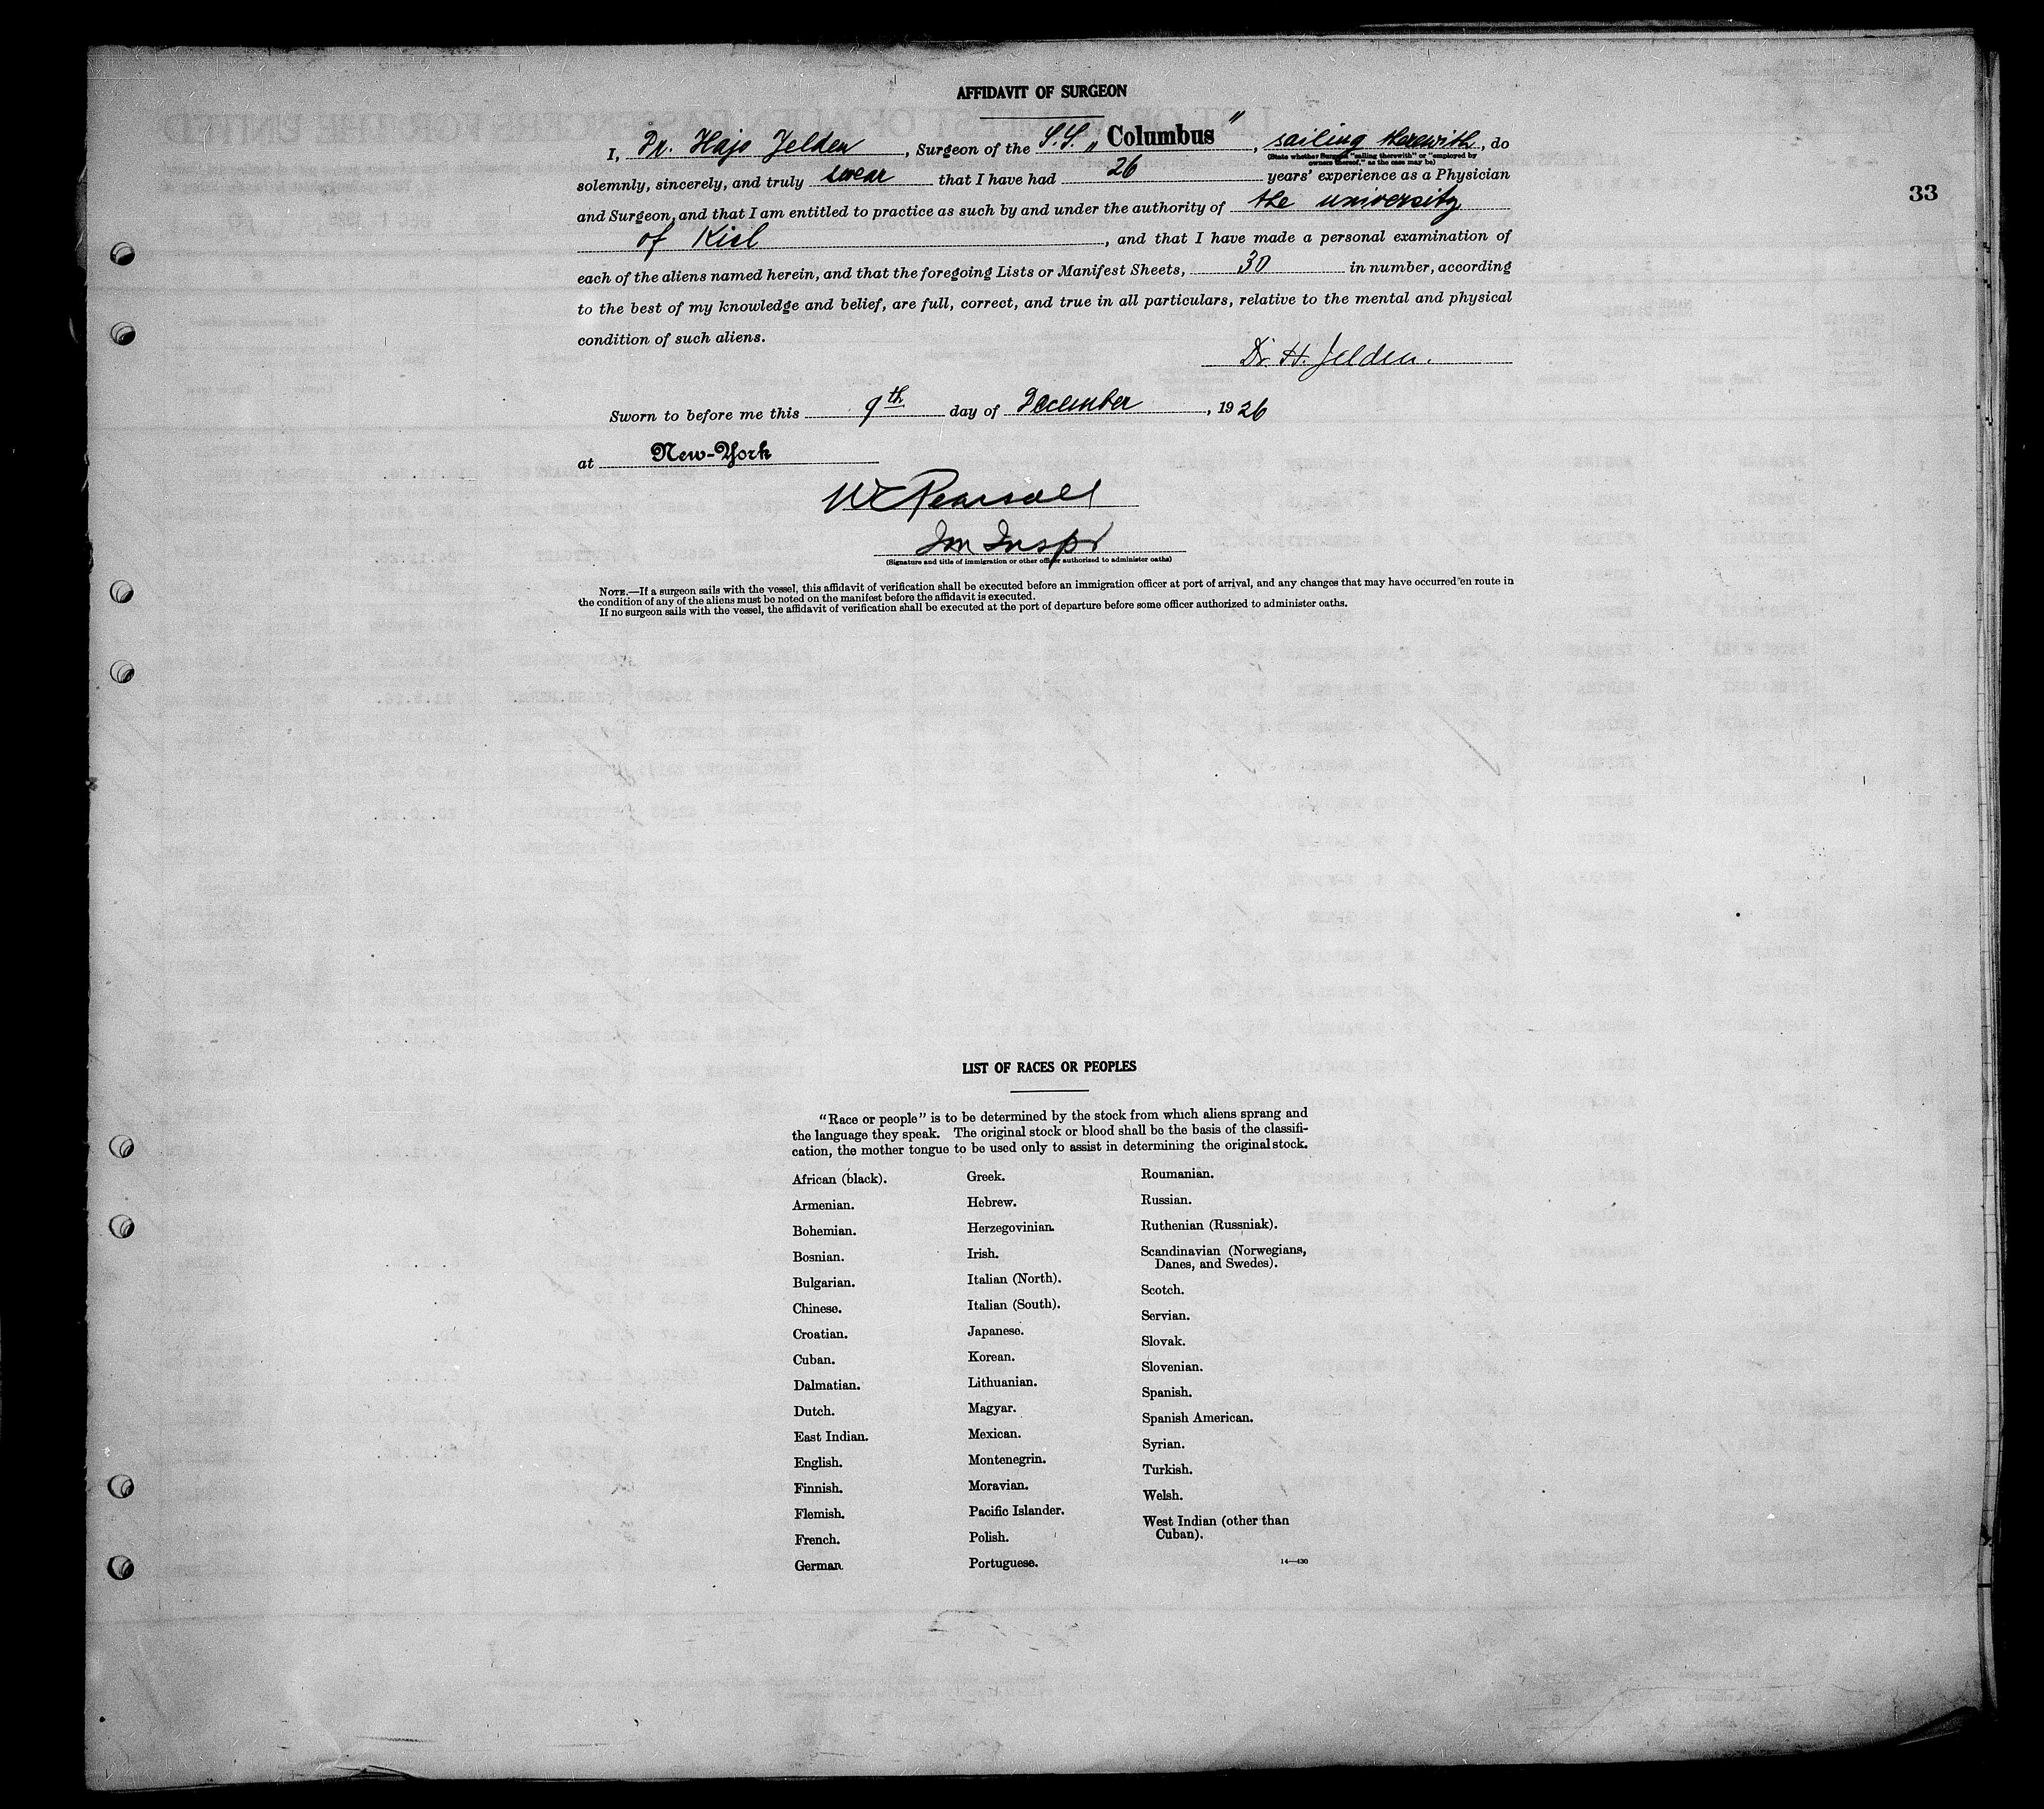 AFFIDAVIT OF SURGEON
I, Dr. Hajo Jelden, Surgeon of the S.S. „Columbus", sailing therewith, do
(State whether Surgeon "sailing therewith" or "employed by
owners thereof," as the case may be)
solemnly, sincerely, and truly swear that I have had 26 years' experience as a Physician
and Surgeon, and that I am entitled to practice as such by and under the authority of the university
of Kiel, and that I have made a personal examination of
each of the aliens named herein, and that the foregoing Lists or Manifest Sheets, 30 in number, according
to the best of my knowledge and belief, are full, correct, and true in all particulars, relative to the mental and physical
condition of such aliens.
Dr. H. Jelden.
Sworn to before me this 9th day of December, 1926
at New-York
W C Pearsall
Im Inspr
(Signature and title of immigration or other officer authorized to administer oaths)
NOTE.—If a surgeon sails with the vessel, this affidavit of verification shall be executed before an immigration officer at port of arrival, and any changes that may have occurred en route in
the condition of any of the aliens must be noted on the manifest before the affidavit is executed.
If no surgeon sails with the vessel, the affidavit of verification shall be executed at the port of departure before some officer authorized to administer oaths.
33
LIST OF RACES OR PEOPLES
"Race or people" is to be determined by the stock from which aliens sprang and
the language they speak. The original stock or blood shall be the basis of the classifi-
cation, the mother tongue to be used only to assist in determining the original stock.
African (black).
Armenian.
Bohemian.
Bosnian.
Bulgarian.
Chinese.
Croatian.
Cuban.
Dalmatian.
Dutch.
East Indian.
English.
Finnish.
Flemish.
French.
German.
Greek.
Hebrew.
Herzegovinian.
Irish.
Italian (North).
Italian (South).
Japanese.
Korean.
Lithuanian.
Magyar.
Mexican.
Montenegrin.
Moravian.
Pacific Islander.
Polish.
Portuguese.
Roumanian.
Russian.
Ruthenian (Russniak).
Scandinavian (Norwegians,
Danes, and Swedes).
Scotch.
Servian.
Slovak.
Slovenian.
Spanish.
Spanish American.
Syrian.
Turkish.
Welsh.
West Indian (other than
Cuban).
14—430